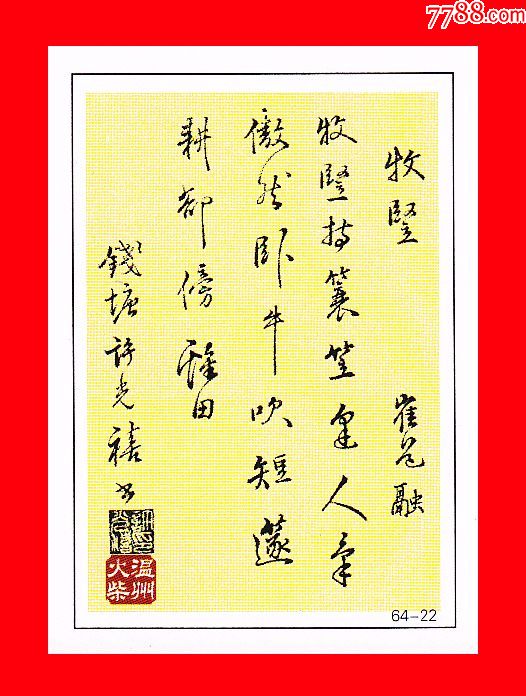 7788.com
牧豎 崔道融
牧豎持蓑笠逢人氣
傲然臥牛吹短篴
耕卻傍谿田
錢塘許光禧书
温州
火柴
64-22